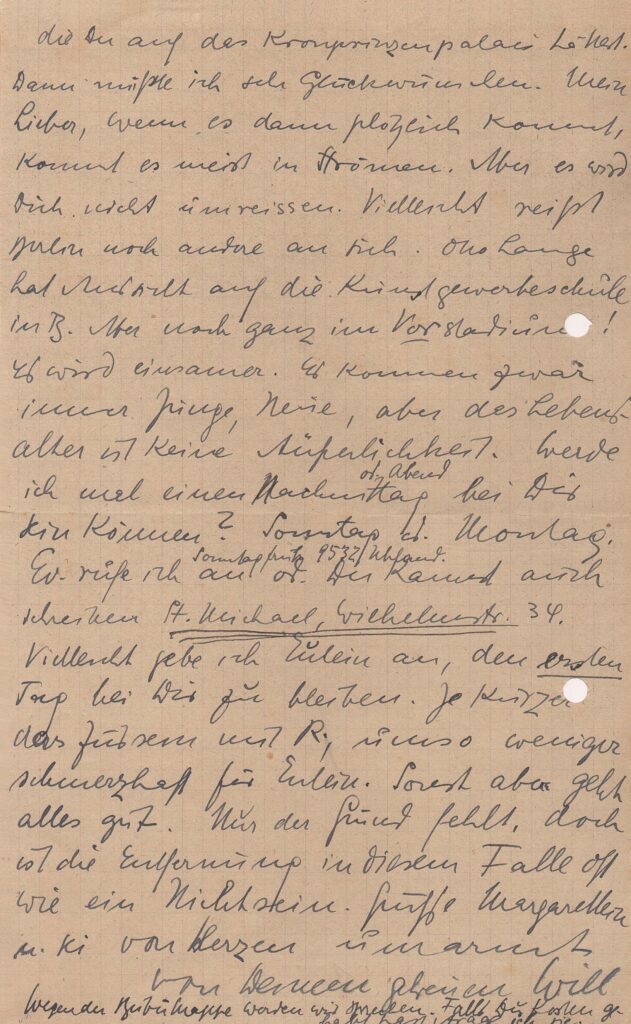 die Du auf das Kronprinzenpalais hättest.
Dann müßte ich sehr Glückwünschen. Mein
Lieber, wenn es dann plötzlich kommt,
kommt es meist in Strömen. Aber es wird
Dich nicht umreissen. Vielleicht reißt
Berlin noch andere an sich. Otto Lange
hat Aussicht auf die Kunstgewerbeschule
in B. Aber noch ganz im Vorstadium!
Es wird einsamer. Es kommen zwar
immer Junge, Neue, aber das Lebens-
alter ist keine Äußerlichkeit. Werde
ich mal einen Nachmittag od. Abend bei Dir
sein können? Sonntag od. Montag.
Ev. rufe ich Sonntag früh 9532 Uhland. an od. Du kannst auch
schreiben St. Michael, Wilhelmstr. 34.
Vielleicht gebe ich Eulein an, den ersten
Tag bei Dir zu bleiben. Je kürzer
das mit R., umso weniger
schmerzhaft für Eulein. Sonst aber geht
alles gut. Nur der Freund fehlt, doch
ist die Entfernung in diesem Falle oft
wie ein Nichtsein. Grüße Margaretlein
u. Ki von Herzen umarmt
von Deinem getreuen Will
Wegen der werden wir sprechen. Falls Du Kosten ge-